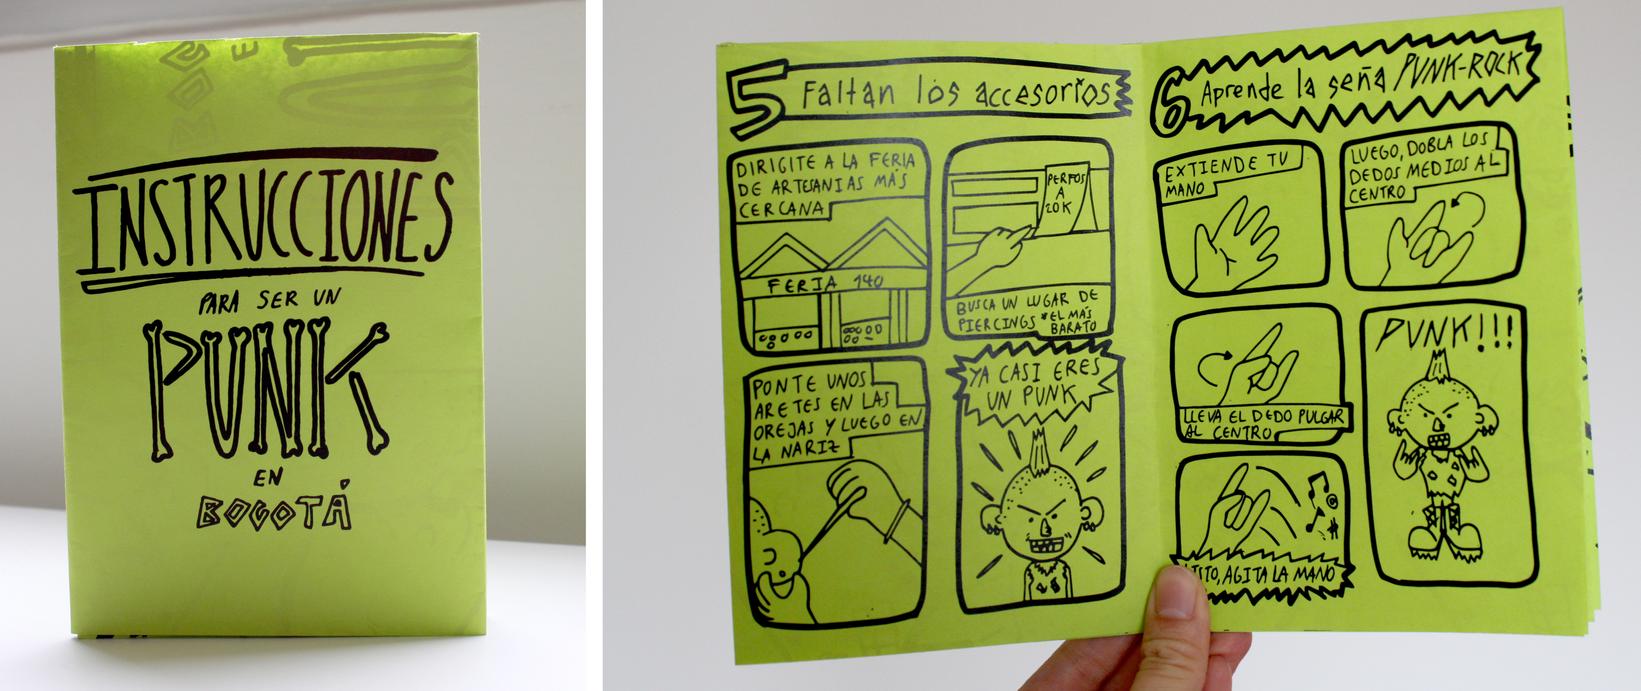 INSTRUCCIONES
PARA SER UN
PUNK
EN
BOGOTÁ
5 Faltan los accesorios
DIRIGITE A LA FERIA
DE ARTESANIAS MÁS
CERCANA
FERIA 140
PERFOS
A
20K
BUSCA UN LUGAR DE
PIERCINGS *EL MÁS
BARATO
PONTE UNOS
ARETES EN LAS
OREJAS Y LUEGO EN
LA NARIZ
YA CASI ERES
UN PUNK
6 Aprende la seña PUNK-ROCK
EXTIENDE TU
MANO
LUEGO, DOBLA LOS
DEDOS MEDIOS AL
CENTRO
LLEVA EL DEDO PULGAR
AL CENTRO
LISTO, AGITA LA MANO
PUNK!!!